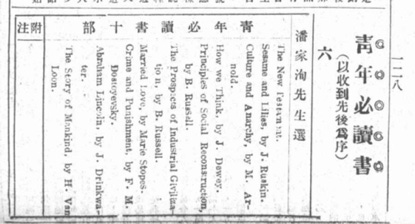 一一八
青年必讀書
(以收到先後爲序)
六
潘家洵先生選
青年必讀書十部
The New Testament.
Sesame and Lilies, by J. Ruskin.
Culture and Anarchy, by M. Ar-
nold.
How we Think, by J. Dewey.
Principles of Social Reconstruction,
by B. Russell.
The Prospects of Industrial Civiliza-
tion, by B. Russell.
Married Love, by Marie Stopes.
Crime and Punishment, by F. M.
Dostoyevsky.
Abraham Lincoln, by J. Drinkwa-
ter.
The Story of Mankind, by H. Van
Loon.
附注